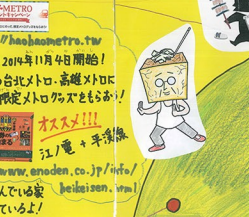 METRO
ントキャンペーン
//haohaometro.tw
2014年11月4日開始!
台北メトロ・高雄メトロに
限定メトログッズをもらおう!
オススメ!!!
江ノ電+平渓線
www.enoden.co.jp/info/
heikeisen.html
んでいる家
ているよ!